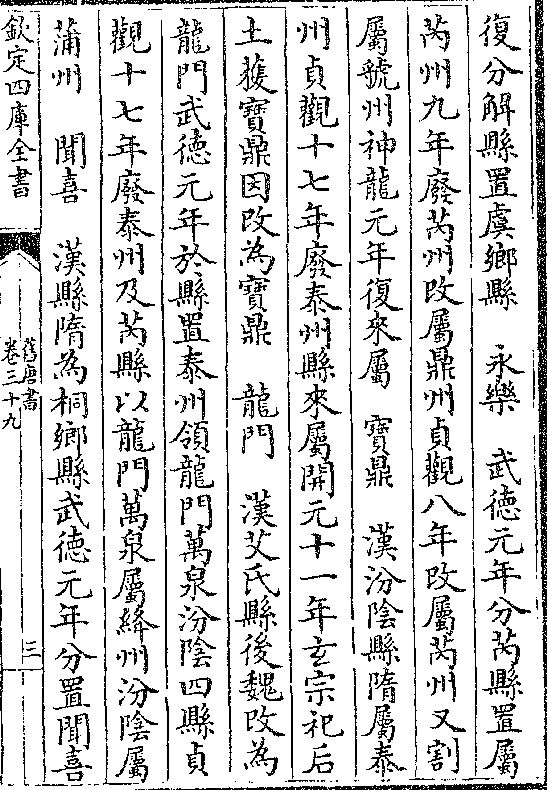 復分解縣置虞鄉縣　永樂　武德元年分芮縣置屬
芮州九年廢芮州改屬鼎州貞觀八年改屬芮州又割
屬虢州神龍元年復來屬　寶鼎　漢汾陰縣隋屬泰
州貞觀十七年廢泰州縣來屬開元十一年玄宗祀后
土獲寶鼎因改為寶鼎　龍門　漢艾氏縣後魏改為
龍門武德元年於縣置泰州領龍門萬泉汾陰四縣貞
觀十七年廢泰州及芮縣以龍門萬泉屬絳州汾陰屬
蒲州　聞喜　漢縣隋為桐鄉縣武德元年分置聞喜
欽定四庫全書
舊唐書
卷三十九
三